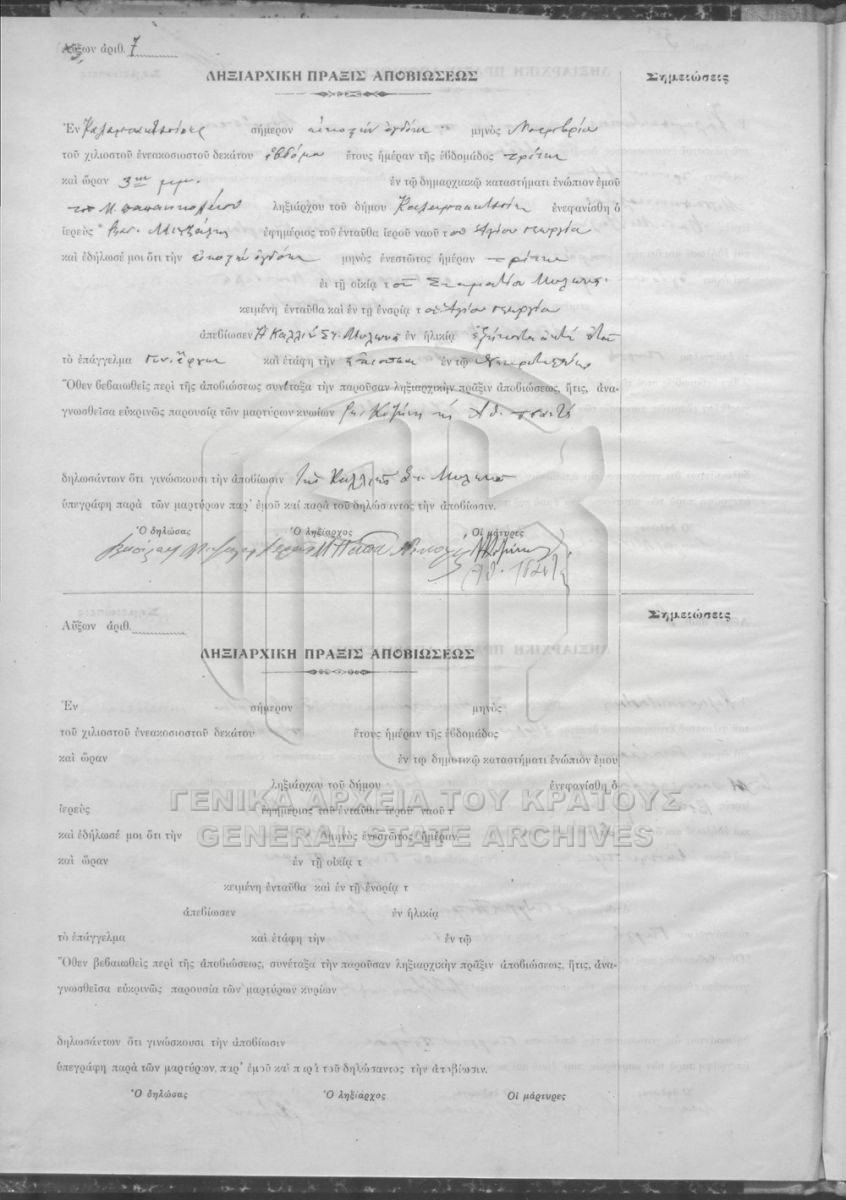 Αὔξων ἀριθ. 7
ΛΗΞΙΑΡΧΙΚΗ ΠΡΑΞΙΣ ΑΠΟΒΙΩΣΕΩΣ
Σημειώσεις
Ἐν σήμερον εἰκοστὴν ὀγδόην μηνὸς Νοεμβρίου
τοῦ χιλιοστοῦ ἐνεακοσιοστοῦ δεκάτου ἑβδόμου ἔτους ἡμέραν τῆς ἑβδομάδος τρίτην
καὶ ὥραν 3ην μμ. ἐν τῷ δημαρχιακῷ καταστήματι ἐνώπιον ἐμοῦ
ληξιάρχου τοῦ δήμου ἐνεφανίσθη ὁ
ἱερεὺς ἐφημέριος τοῦ ἐνταῦθα ἱεροῦ ναοῦ τοῦ Ἁγίου Γεωργίου
καὶ ἐδήλωσέ μοι ὅτι τὴν εἰκοστὴν ὀγδόην μηνὸς ἐνεστῶτος ἡμέραν τρίτην
ἐν τῇ οἰκίᾳ τοῦ Σταματίου Μυλωνᾶ
κειμένῃ ἐνταῦθα καὶ ἐν τῇ ἐνορίᾳ τοῦ Ἁγίου Γεωργίου
ἀπεβίωσεν Ἡ Καλλιὼ Στ. Μυλωνᾶ ἐν ἡλικίᾳ
τὸ ἐπάγγελμα καὶ ἐτάφη τὴν ἐν τῷ Νεκροταφείῳ
Ὅθεν βεβαιωθεὶς περὶ τῆς ἀποβιώσεως συνέταξα τὴν παροῦσαν ληξιαρχικὴν πρᾶξιν ἀποβιώσεως, ἥτις, ἀνα-
γνωσθεῖσα εὐκρινῶς παρουσίᾳ τῶν μαρτύρων κυρίων
δηλωσάντων ὅτι γινώσκουσι τὴν ἀποβίωσιν τῆς Καλλιῶς Στ. Μυλωνᾶ
ὑπεγράφη παρὰ τῶν μαρτύρων παρ' ἐμοῦ καὶ παρὰ τοῦ δηλώσαντος τὴν ἀποβίωσιν.
Ὁ δηλώσας Ὁ ληξίαρχος Οἱ μάρτυρες
Αὔξων ἀριθ.
Σημειώσεις
ΛΗΞΙΑΡΧΙΚΗ ΠΡΑΞΙΣ ΑΠΟΒΙΩΣΕΩΣ
Ἐν σήμερον μηνὸς
τοῦ χιλιοστοῦ ἐνεακοσιοστοῦ δεκάτου ἔτους ἡμέραν τῆς ἑβδομάδος
καὶ ὥραν ἐν τῳ δημοτικῷ καταστήματι ἐνώπιον ἐμου
ληξιάρχου τοῦ δήμου ἐνεφανίσθη ὁ
ΓΕΝΙΚΑ ΑΡΧΕΙΑ ΤΟΥ ΚΡΑΤΟΥΣ
ἱερεὺς ἐφημέριος τοῦ ἐνταῦθα ἱεροῦ ναοῦ τ
GENERAL STATE ARCHIVES
καὶ ἐδήλωσέ μοι ὅτι τὴν μηνὸς ἐνεστῶτος ἡμέραν
καὶ ὥραν ἐν τῇ οἰκίᾳ τ
κειμένῃ ἐνταῦθα καὶ ἐν τῇ ἐνορίᾳ τ
ἀπεβίωσεν ἐν ἡλικίᾳ
τὸ ἐπάγγελμα καὶ ἐτάφη τὴν ἐν τῷ
Ὅθεν βεβαιωθεὶς περὶ τῆς ἀποβιώσεως, συνέταξα τὴν παροῦσαν ληξιαρχικὴν πρᾶξιν ἀποβιώσεως, ἥτις, ἀνα-
γνωσθεῖσα εὐκρινῶς παρουσίᾳ τῶν μαρτύρων κυρίων
δηλωσάντων ὅτι γινώσκουσι τὴν ἀποβίωσιν
ὑπεγράφη παρὰ τῶν μαρτύρων, παρ' ἐμοῦ καὶ παρὰ τοῦ δηλώσαντος τὴν ἀποβίωσιν.
Ὁ δηλώσας Ὁ ληξίαρχος Οἱ μάρτυρες